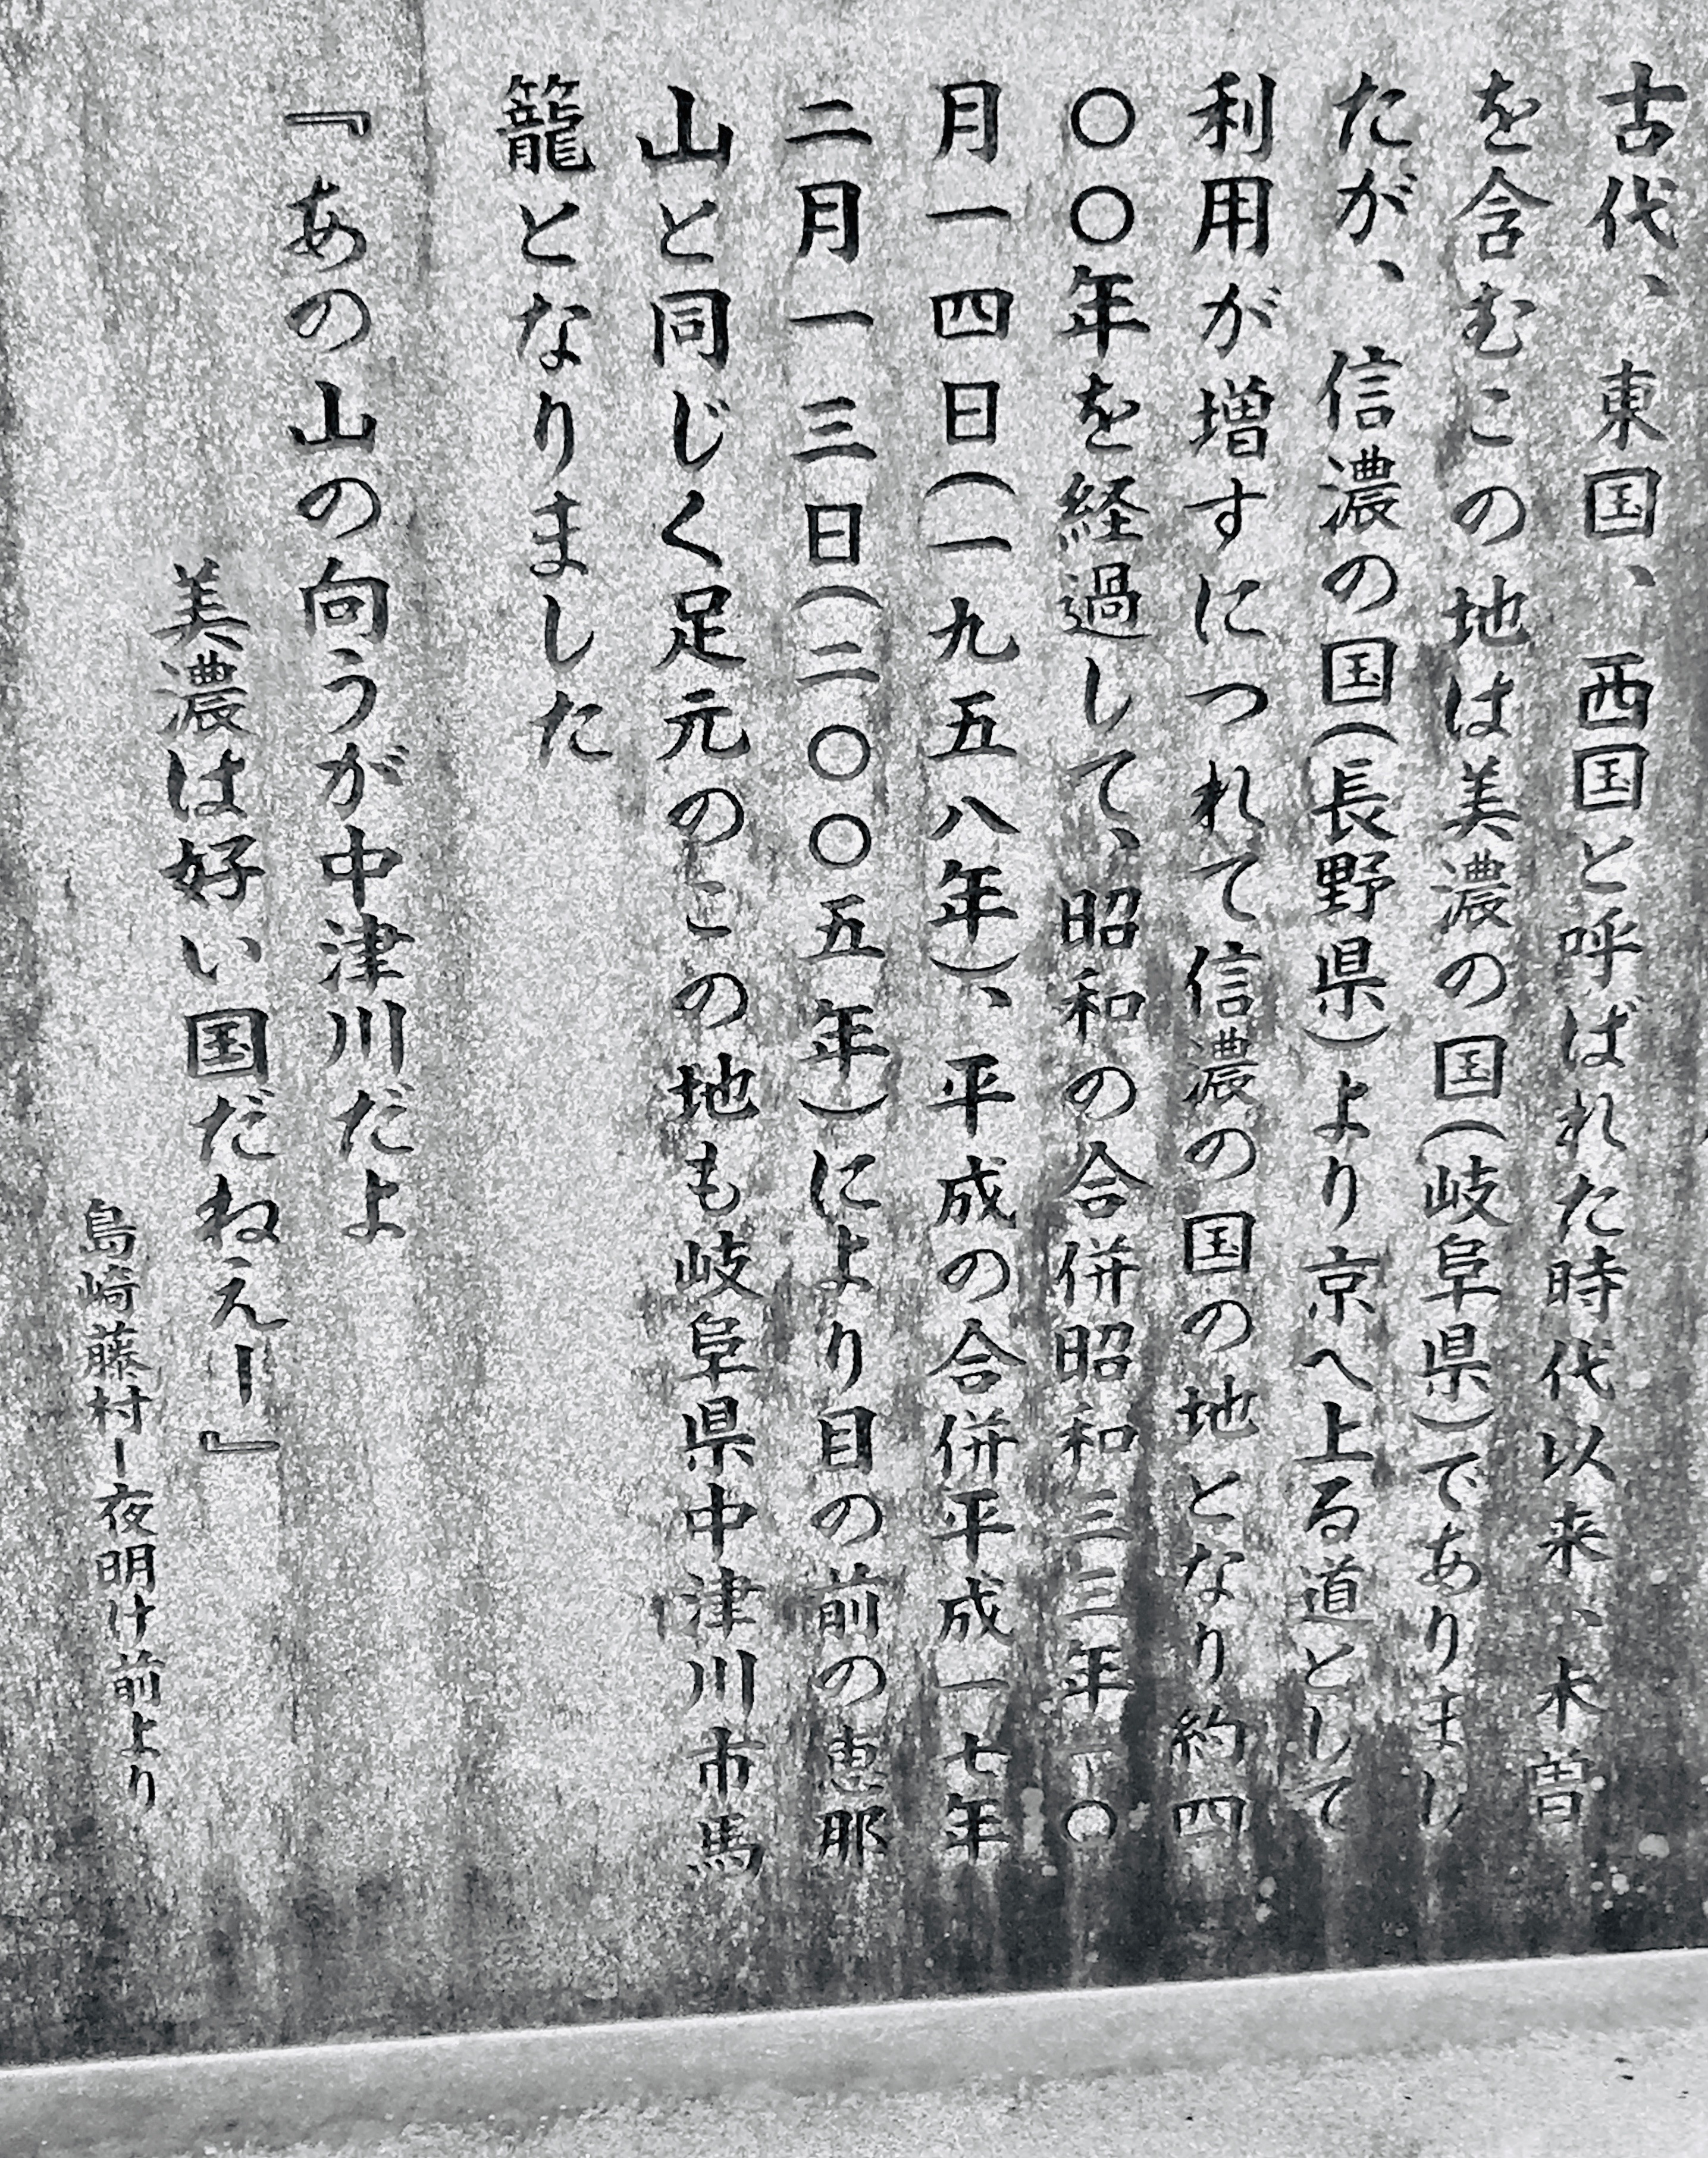 古代、東国、西国と呼ばれた時代以来、木曽
を含むこの地は美濃の国(岐阜県)でありまし
たが、信濃の国(長野県)より京へ上る道として
利用が増すにつれて信濃の国の地となり約四
〇〇年を経過して、昭和の合併昭和三三年一〇
月一四日(一九五八年)、平成の合併平成一七年
二月一三日(二〇〇五年)により目の前の恵那
山と同じく足元のこの地も岐阜県中津川市馬
籠となりました
『あの山の向うが中津川だよ
美濃は好い国だねえー』
島崎藤村ー夜明け前より